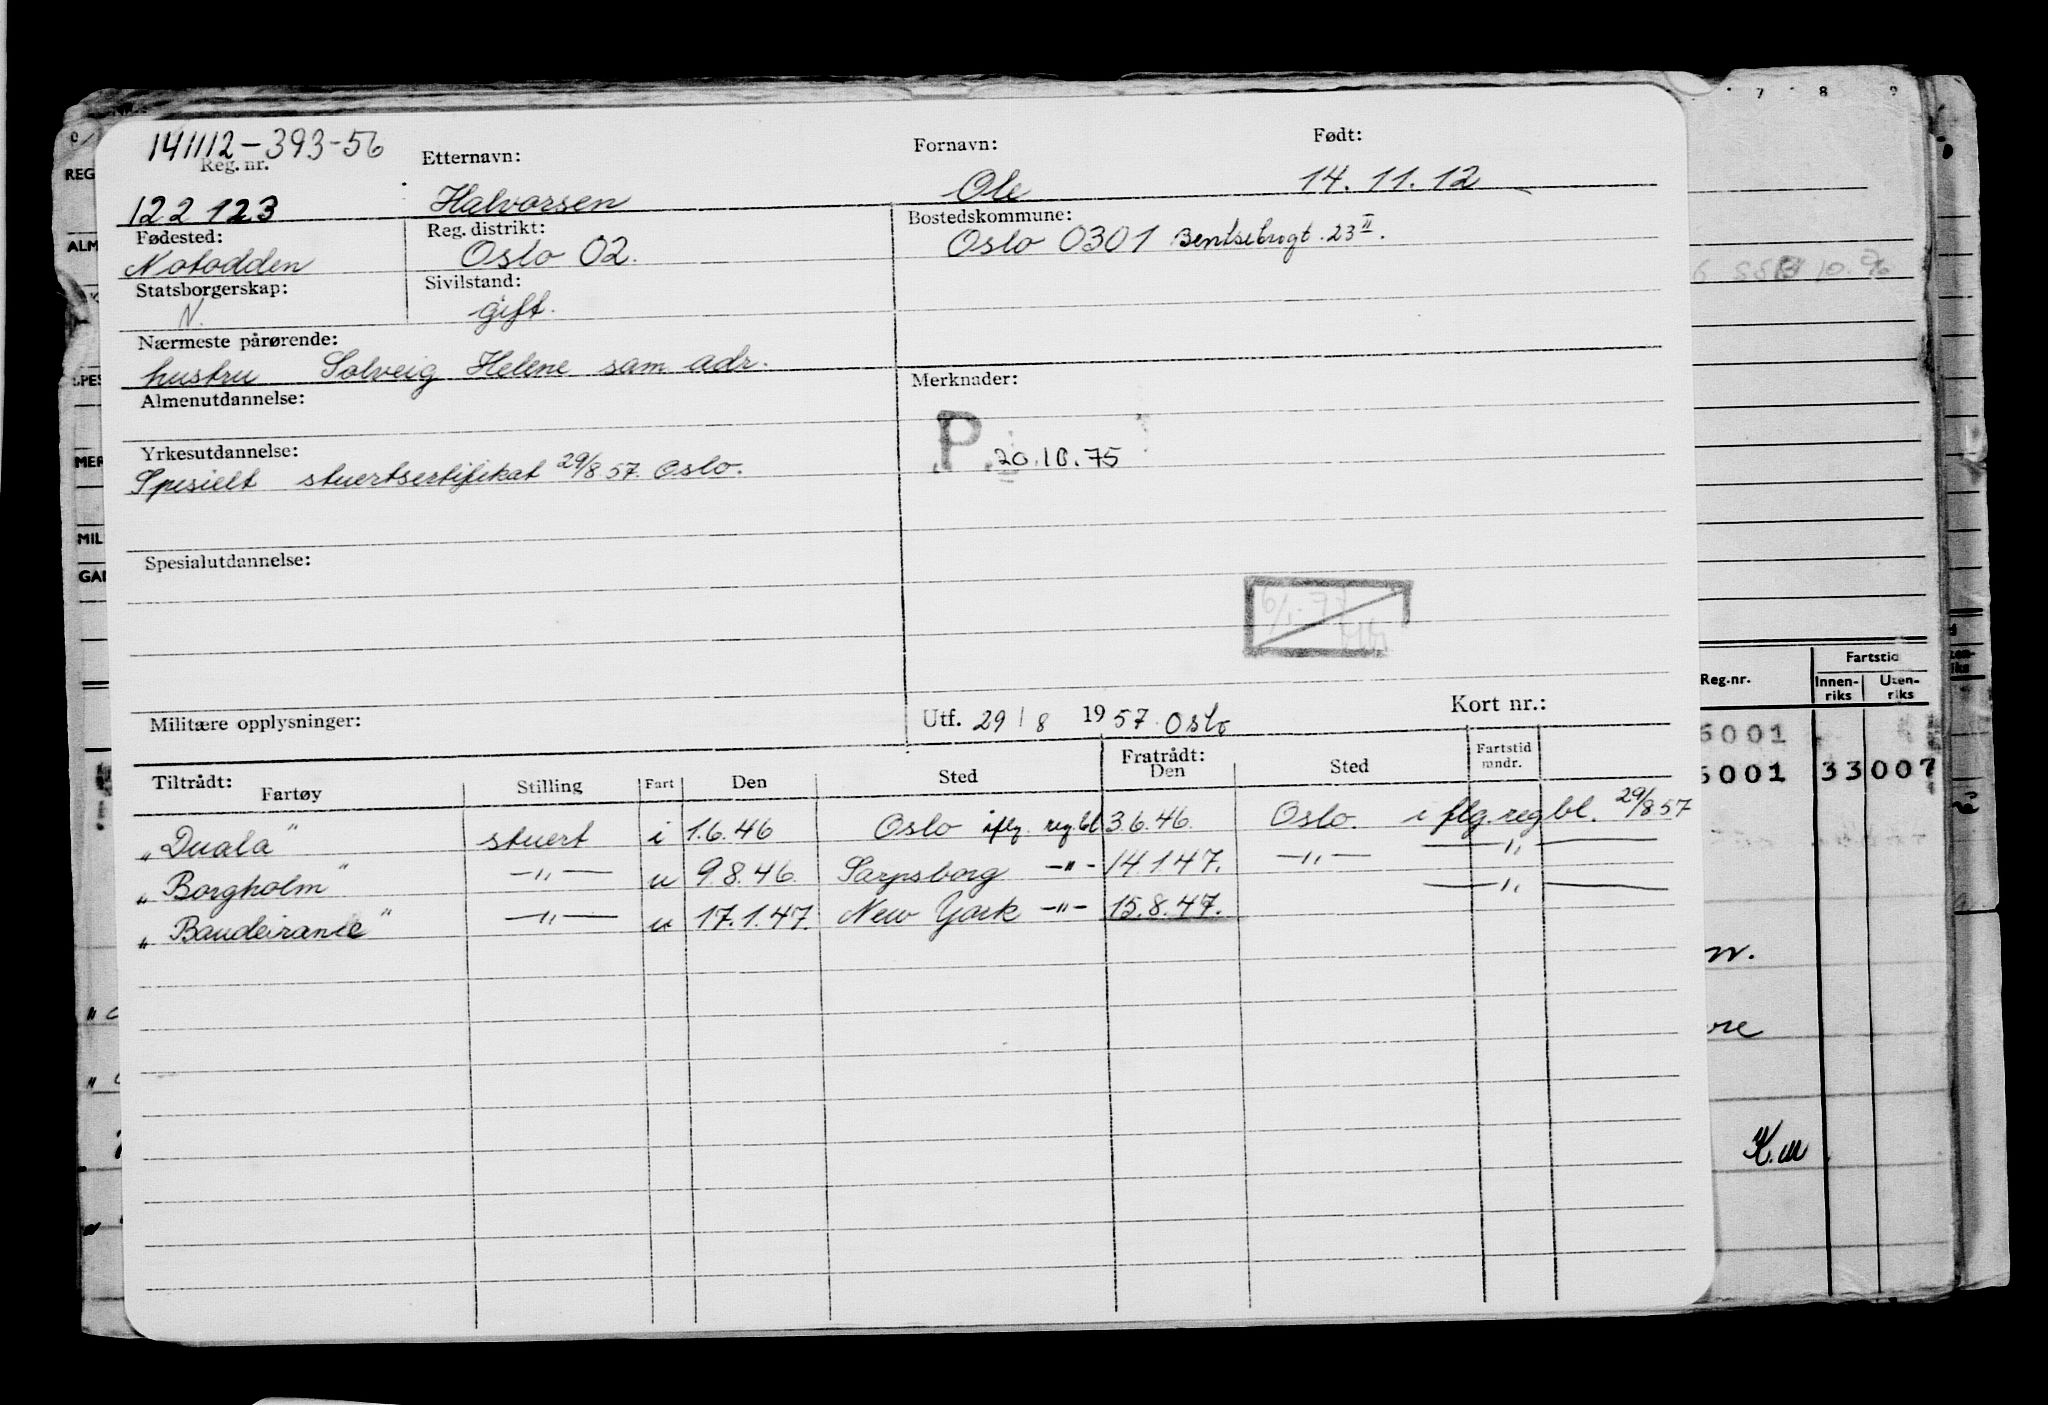 141112-393-56
Reg. nr. Etternavn: Fornavn: Født:
122123 Halvorsen Ole 14.11.12
Fødested: Reg. distrikt: Bostedskommune:
Notodden Oslo 02. Oslo 0301 Bentsebrogt. 23 II.
Statsborgerskap: Sivilstand:
N. gift.
Nærmeste pårørende:
hustru Solveig Helene sam. adr.
Almenutdannelse: Merknader:
Yrkesutdannelse: P. 20.10.75
Spesielt stuertsertifikat 29/8 57. Oslo.
Spesialutdannelse:
6/1-77
Militære opplysninger: Utf. 29/8 1957. Oslo Kort nr.:
Tiltrådt: Fratrådt: Fartstid
Fartøy Stilling Fart Den Sted Den Sted mndr.
"Duala" stuert i 1.6.46 Oslo iflg. reg.bl 3.6.46. Oslo. i flg. reg bl. 29/8 57
"Borgholm" —"— u 9.8.46. Sarpsborg -"- 14 1 47. —"— —"—
"Baudeirante" —"— u 17.1.47. New York -"- 15.8.47. —"—
7 8 9
REG
ALM
SPES
MER
MIL
GAI
Fartstid
Reg.nr. Innen-riks Uten-riks
6001
6001 33 007
K.m